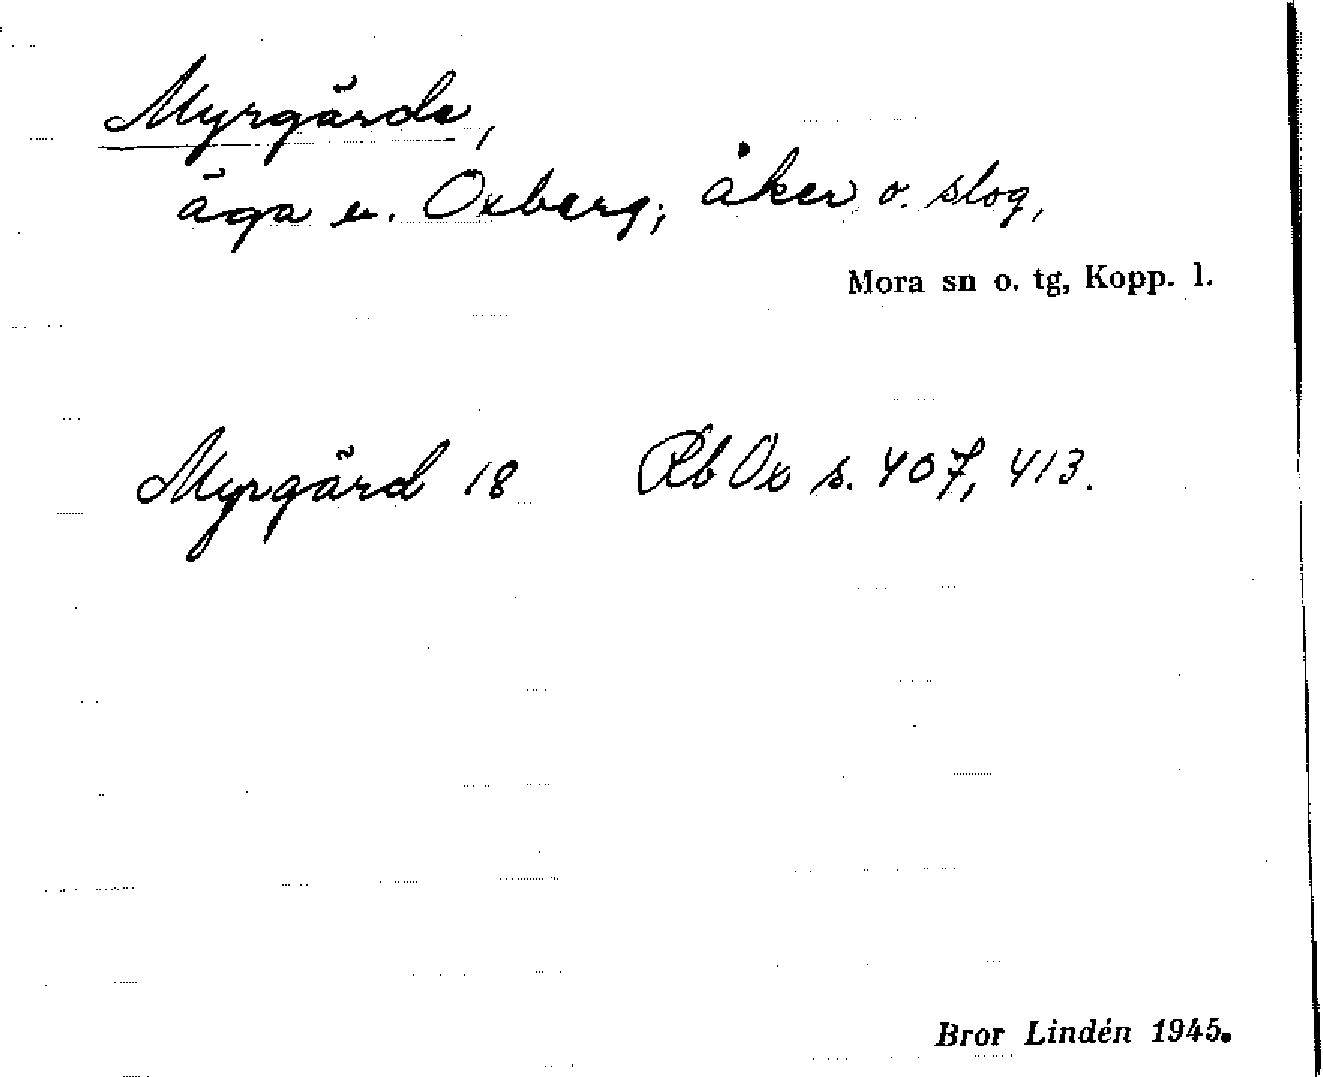 Myrgärde,
äga u. Oxberg; åker o. slog,
Mora sn o. tg, Kopp. l.
Myrgärd 18 Rb Ox s. 407, 413.
Bror Lindén 1945.